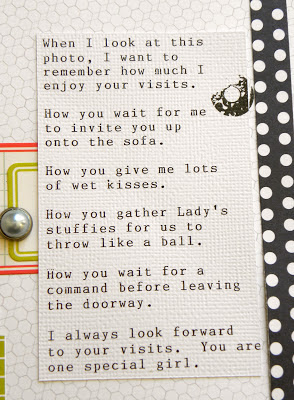 When I look at this
photo, I want to
remember how much I
enjoy your visits.
How you wait for me
to invite you up
onto the sofa.
How you give me lots
of wet kisses.
How you gather Lady's
stuffies for us to
throw like a ball.
How you wait for a
command before leaving
the doorway.
I always look forward
to your visits.  You are
one special girl.